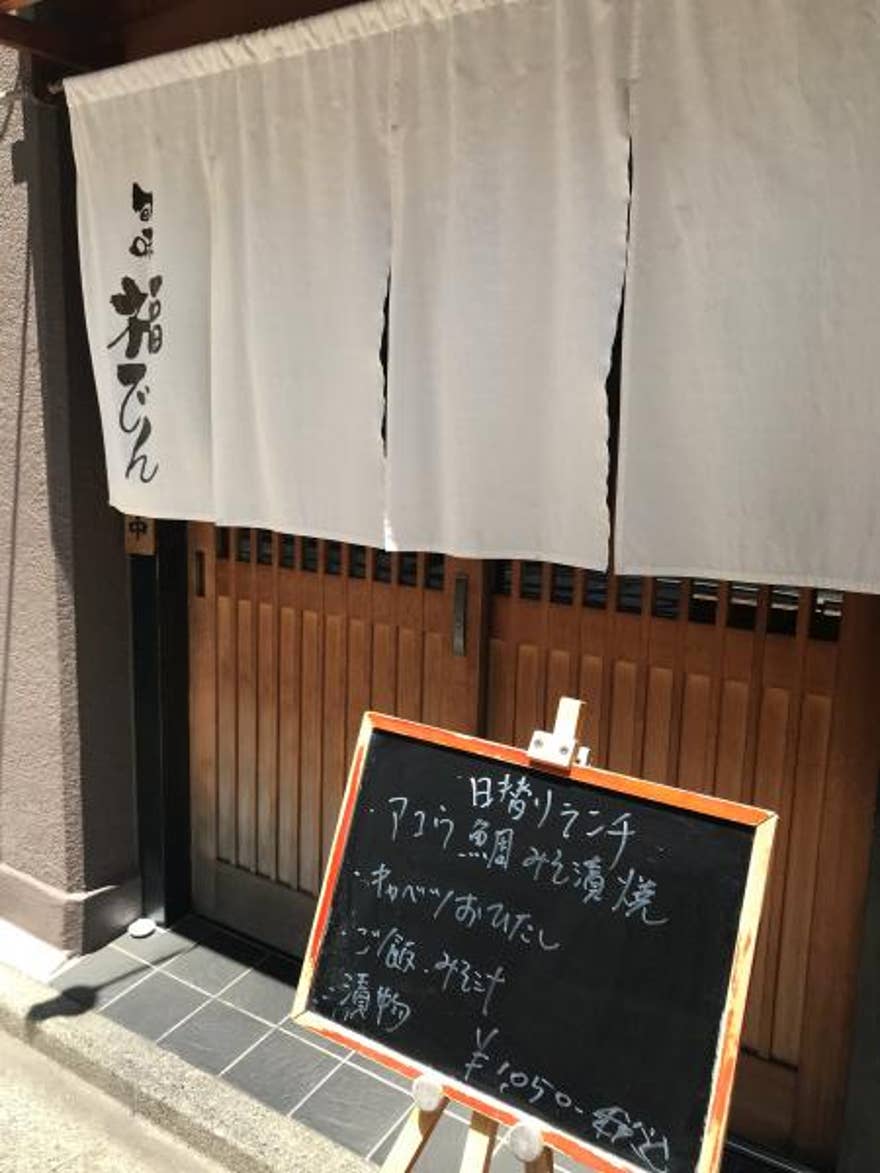 旬味
福でん
中
日替りランチ
・アコウ鯛みそ漬焼
・キャベツおひたし
・ご飯、みそ汁
・漬物
¥1,050-税込